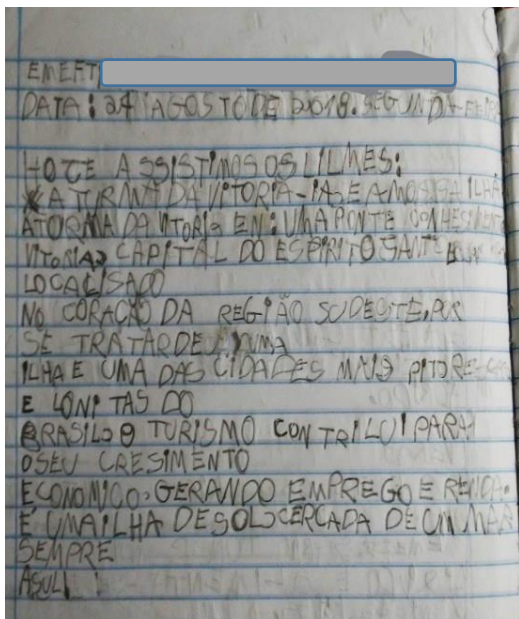 EMEFT
DATA: 27 AGOSTO DE 2018. SEGUNDA-FEI
HOTE ASSISTIMOS OS LILMES:
A TURMA DA VITORIA-
ATORMA DA VITORIA EN: UMA PONTE
VITORIA CAPITAL DO ESPIRITO SANT
LOCALISADO
NO CORAÇÃO DA REGIÃO SUDESTE, POR
SE TRATAR DE UMA
ILHA E UMA DAS CIDADES MAIS PITORES
E LONITAS DO
BRASIL O TURISMO CONTRILUI PARA
O SEU CRESIMENTO
ECONOMICO, GERANDO EMPREGO E RENDA.
E UMA ILHA DE SOL CERCADA DE UM MAR
SEMPRE
ASUL!